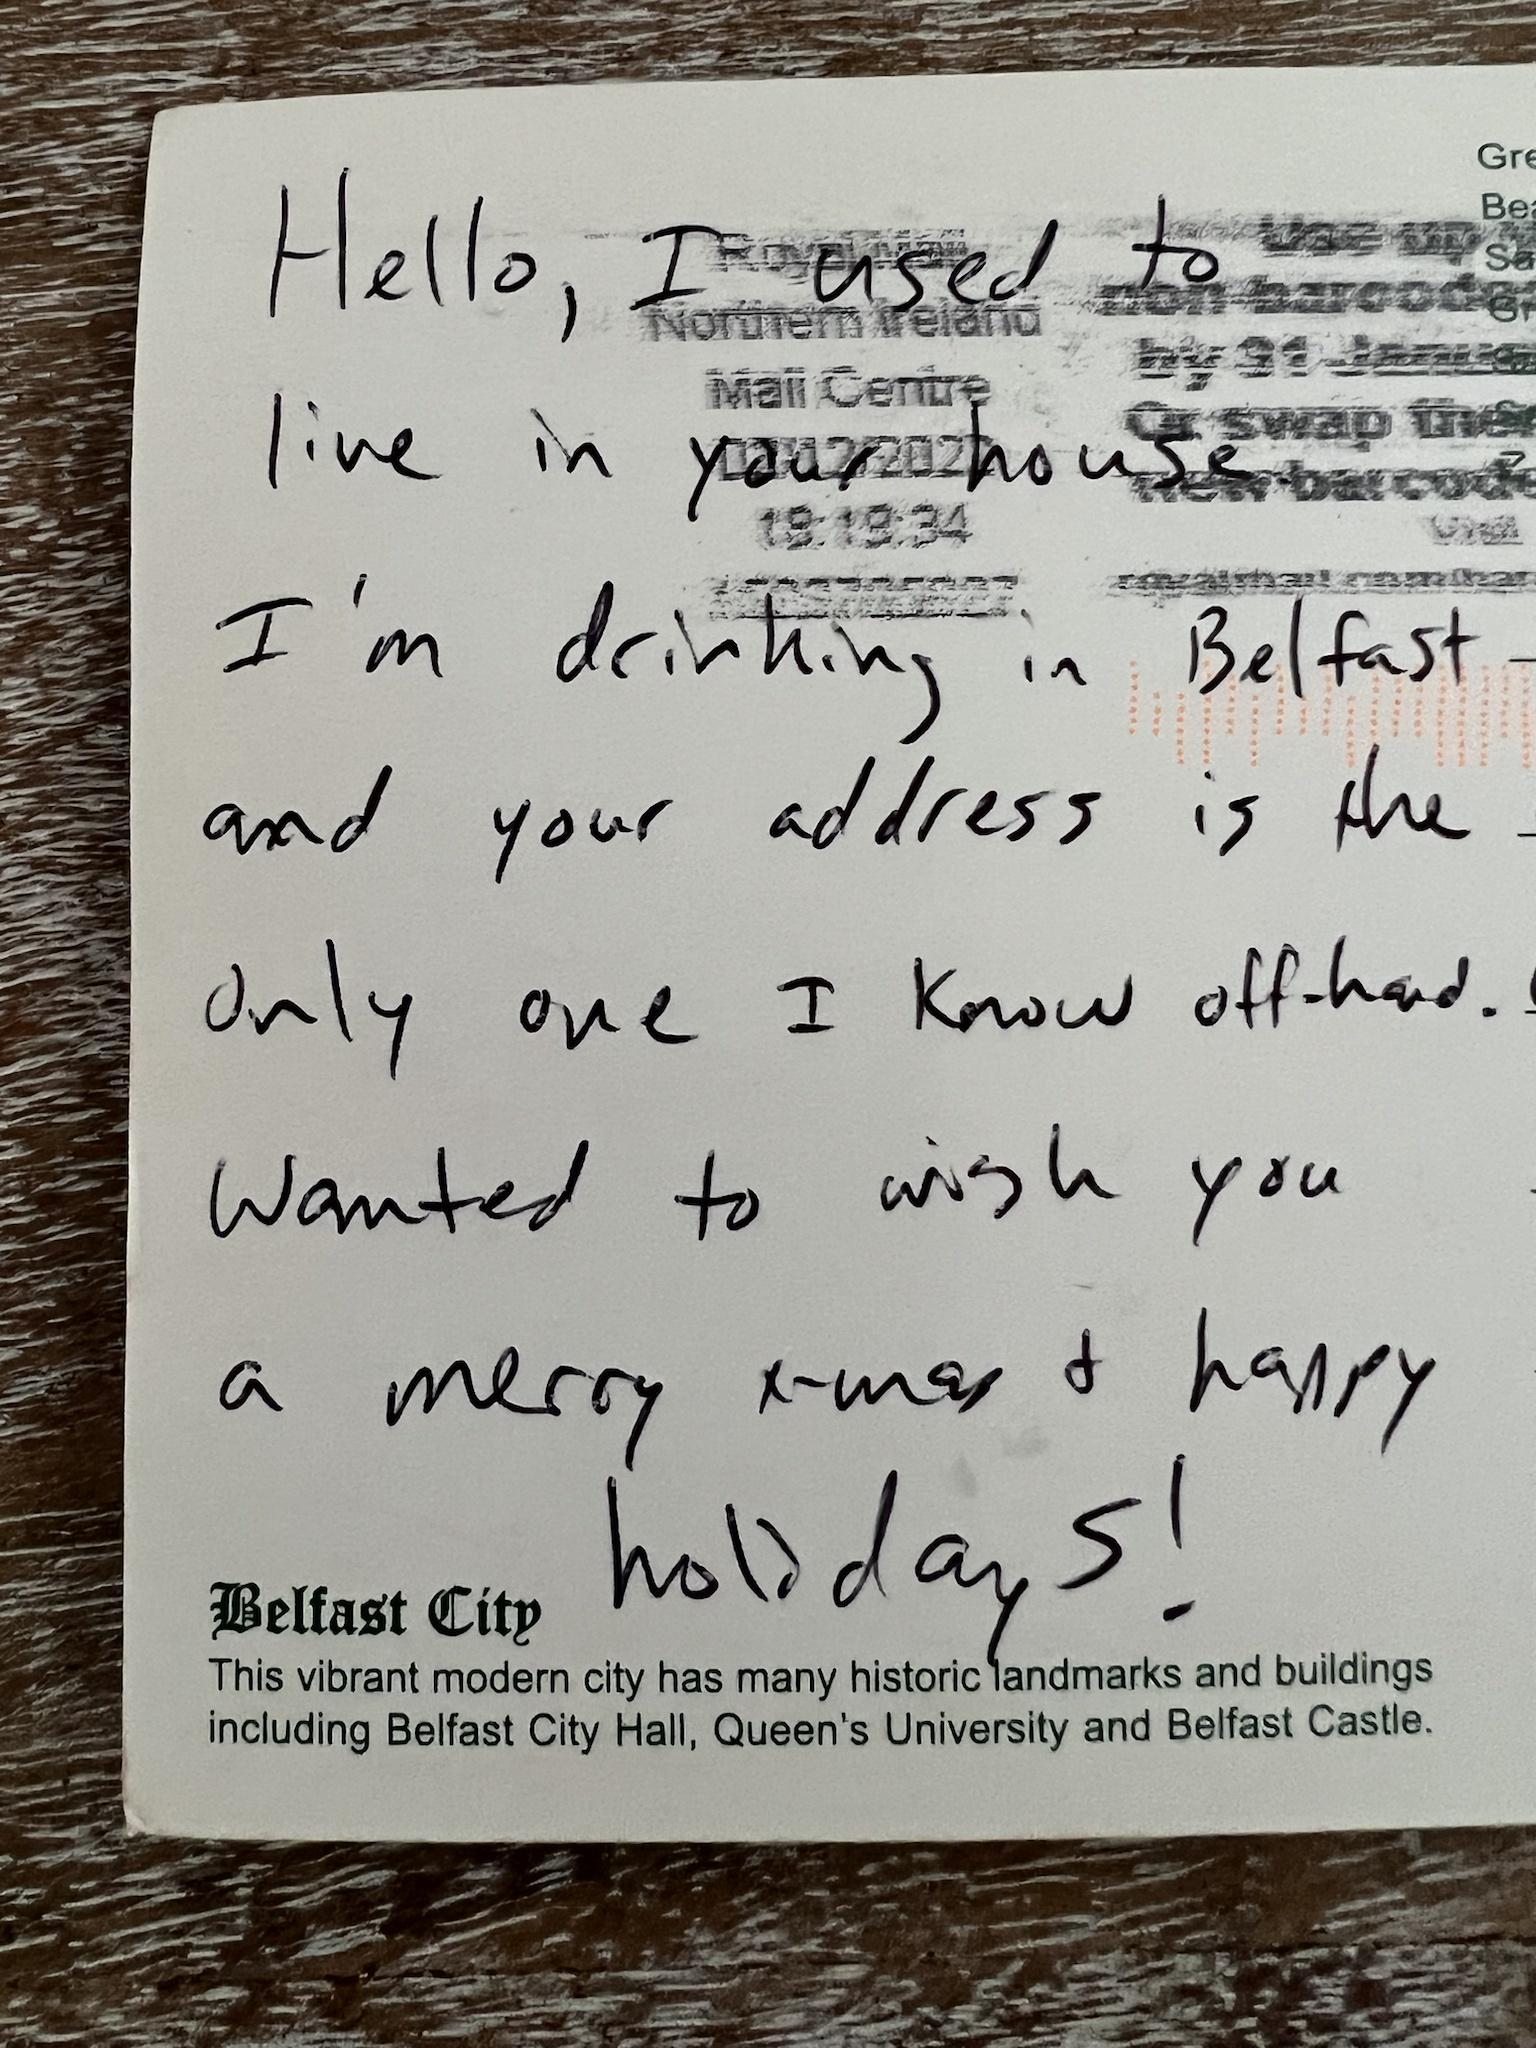 Hello, I used to
live in your house.
I'm drinking in Belfast
and your address is the
only one I know off-hand.
Wanted to wish you
a merry x-mas & happy
holidays!
Royal Mail
Northern Ireland
Mail Centre
19:19:34
Use up
non barcode
by 31 Janua
Or swap the
new barcode
Visit
royalmail.com/bar
Gre
Bea
Sa
Gr
Belfast City
This vibrant modern city has many historic landmarks and buildings
including Belfast City Hall, Queen's University and Belfast Castle.